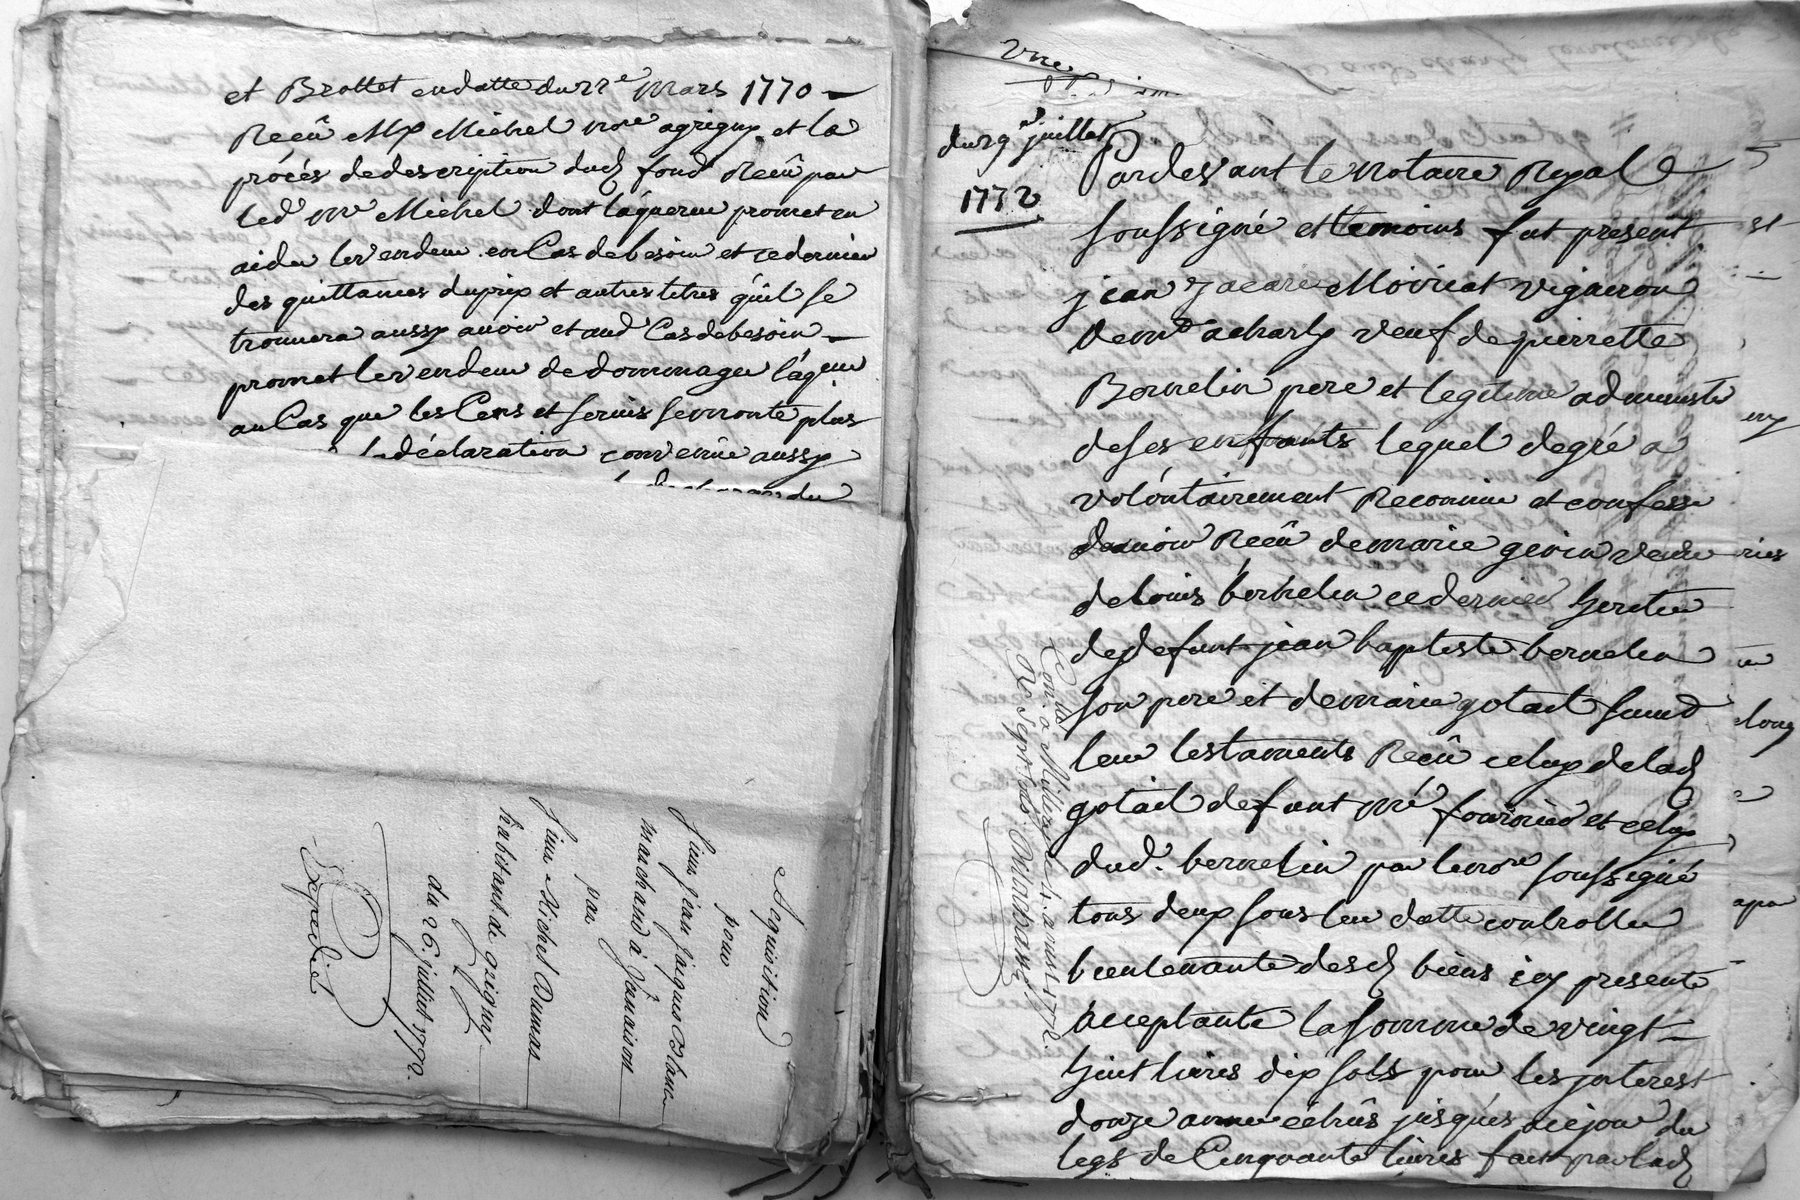 et Brottet en datte du 22e Mars 1770
Recû Me Michel nore a grigny et la
procés de description dud fond Recû par
led Me Michel dont l'aquereur promet en
aider le vendeur en Cas de besoin et ce dernier
des quittances du prix et autres titres qu'il se
trouvera aussy avoir et aud Cas de besoin
promet le vendeur de dommager l'aqueur
au Cas que les Cens et servis se monte plus
la déclaration convenüe aussy
du
Aquisition
pour
Sieur jean jaques Blanc
marchand à
par
Sieur Michel Dumas
habitant de grigny
du 26 juillet 1772.
Expedié
du 29e juillet
1772
Pardevant le Notaire Royal
soussigné et temoins fut present
jean Moiriat vigneron
demt a charly veuf de pierrette
Bernelin pere et legitime administe
de ses enfants lequel de gré a
volontairement Reconnu et confesse
d'avoir Recû de marie gevin veuve
de loüis bernelin ce dernier heritier
de defunt jean baptiste bernelin
son pere et de marie gotail suivd
leur testaments Recû celuy de lad
gotail defunt Me fournier et celuy
dud. bernelin par le nore soussigné
tous deux sous leur datte controllee
bientenante desd biens icy presente
acceptante la somme de vingt
huit livres dix sols pour les interest
douze année échûs jusqu'es à ce jour du
legs de Cinquante livres fait par lad
Con. à Millery le 4. aoust 1772.